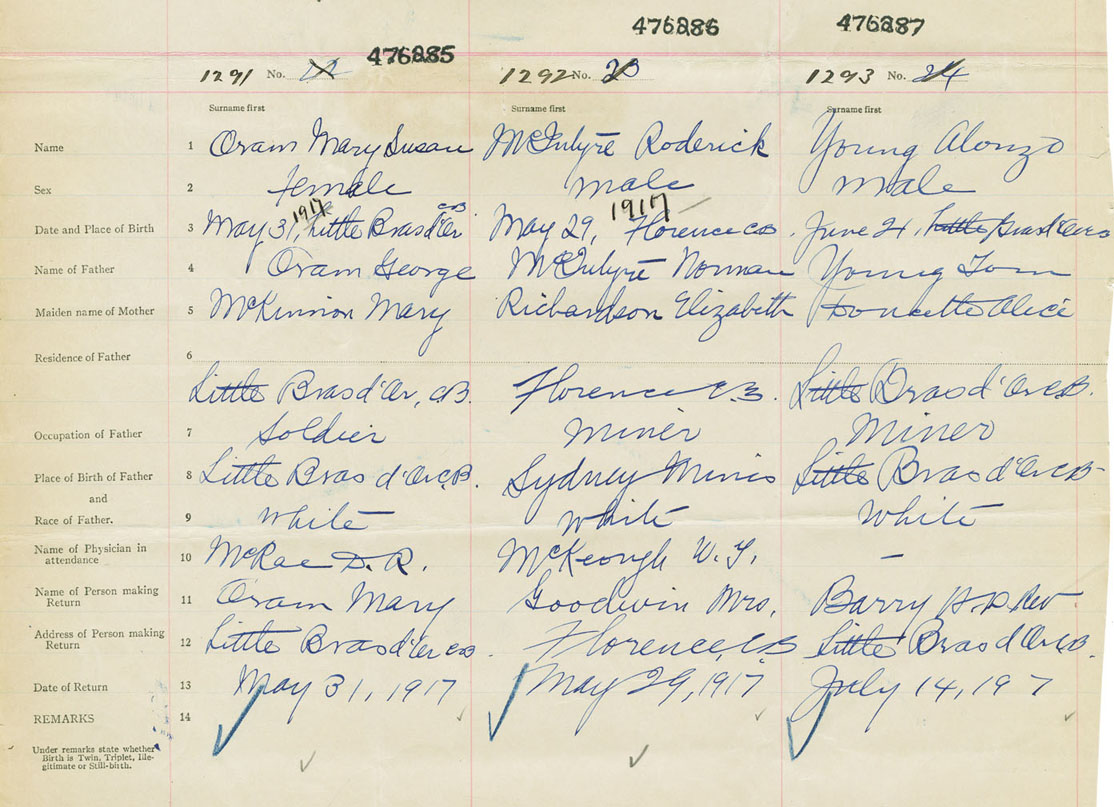 476885 476886 476887
1291 No. 22 1292 No. 23 1293 No. 24
Surname first Surname first Surname first
Name 1 Oram Mary Susan McIntyre Roderick Young Alonzo
Sex 2 female male male
1917 1917
Date and Place of Birth 3 May 31, Little Bras d'Or CB May 29, Florence CB. June 21, Little Bras d'Or CB
Name of Father 4 Oram George McIntyre Norman Young Tom
Maiden name of Mother 5 McKinnon Mary Richardson Elizabeth Doucette Alice
Residence of Father 6
Little Bras d'Or, C.B. Florence C.B. Little Bras d'Or C.B.
Occupation of Father 7 Soldier Miner Miner
Place of Birth of Father 8 Little Bras d'Or C.B. Sydney Mines Little Bras d'Or CB
and
Race of Father. 9 White White White
Name of Physician in
attendance 10 McRae D. R. McKeough W. T. –
Name of Person making
Return 11 Oram Mary Goodwin Mrs. Barry Rev
Address of Person making
Return 12 Little Bras d'Or CB. Florence, CB Little Bras d'Or CB.
Date of Return 13 May 31, 1917 May 29, 1917 July 14, 197
REMARKS 14
Under remarks state whether
Birth is Twin, Triplet, Ille-
gitimate or Still-birth.